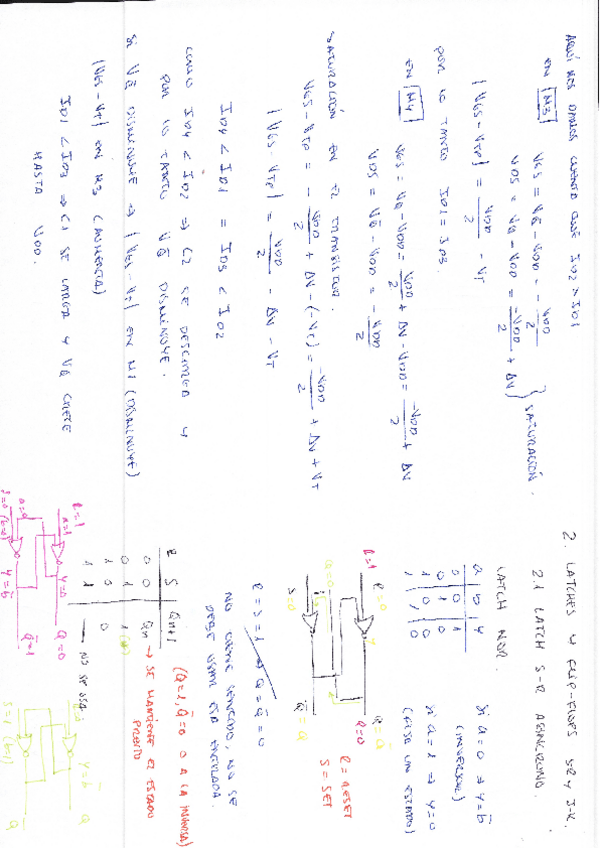 AQUÍ NOS DAMOS CUENTA QUE ID2 > ID1
EN M3 VGS = VQ̄ - VDD = - VDD/2
VDS = VQ - VDD = -VDD/2 + ΔV } SATURACIÓN.
|VGS - VTP| = VDD/2 - VT
POR LO TANTO ID1 = ID3.
EN M4 VGS = VQ - VDD = VDD/2 + ΔV - VDD = -VDD/2 + ΔV
VDS = VQ̄ - VDD = - VDD/2
SATURACIÓN EN EL TRANSISTOR.
VGS - VTP = - VDD/2 + ΔV - (-VT) = -VDD/2 + ΔV + VT
|VGS - VTP| = VDD/2 - ΔV - VT
ID4 < ID1 = ID3 < ID2
COMO ID4 < ID2 ⇒ C2 SE DESCARGA Y
POR LO TANTO VQ̄ DISMINUYE.
SI VQ̄ DISMINUYE ⇒ |VGS - VT| EN M1 (DISMINUYE)
|VGS - VT| EN M3 (AUMENTA)
ID1 < ID3 ⇒ C1 SE CARGA Y VQ CRECE
HASTA VDD.
2. LATCHES Y FLIP-FLOPS SR y J-K.
2.1 LATCH S-R ASÍNCRONO.
LATCH NOR.
a b y
0 0 1
0 1 0
1 0 0
1 1 0
Si a = 0 ⇒ y = b̄
(INVERSOR)
Si a = 1 ⇒ y = 0
R=1 R=0
Q=0
S=0
Q = Q̄
Q=0
Q̄ = Q
R = RESET
S = SET
R = S = 1 ⇒ Q = Q̄ = 0
NO TIENE SENTIDO, NO SE
DEBE USAR ESA ENTRADA.
R S Qn+1
0 0 Qn → SE MANTIENE EL ESTADO
PREVIO
(Q=1, Q̄=0 O A LA INVERSA)
0 1 1
1 0 0
1 1 — NO SE USA.
R=1
a=1 y=0 Q=0
a=0
S=0 (b=0) y=b̄ Q̄=1
y=b̄ Q
S=1 Q̄